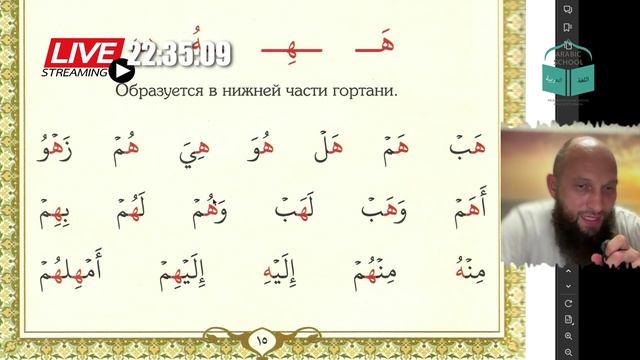 LIVE
STREAMING
22:35:09
هَـ ـهِـ ـهُ
ARABIC
SCHOOL
اللغة العربية
Образуется в нижней части гортани.
هَبْ هَمْ هَلْ هُوَ هِيَ هُمْ زَهْوُ
أَهَمْ وَهَبْ لَهَبْ وَهُمْ لَهُمْ بِهِمْ
مِنْهُ مِنْهُمْ إِلَيْهِ إِلَيْهِمْ أَمْهِلْهُمْ
١٥